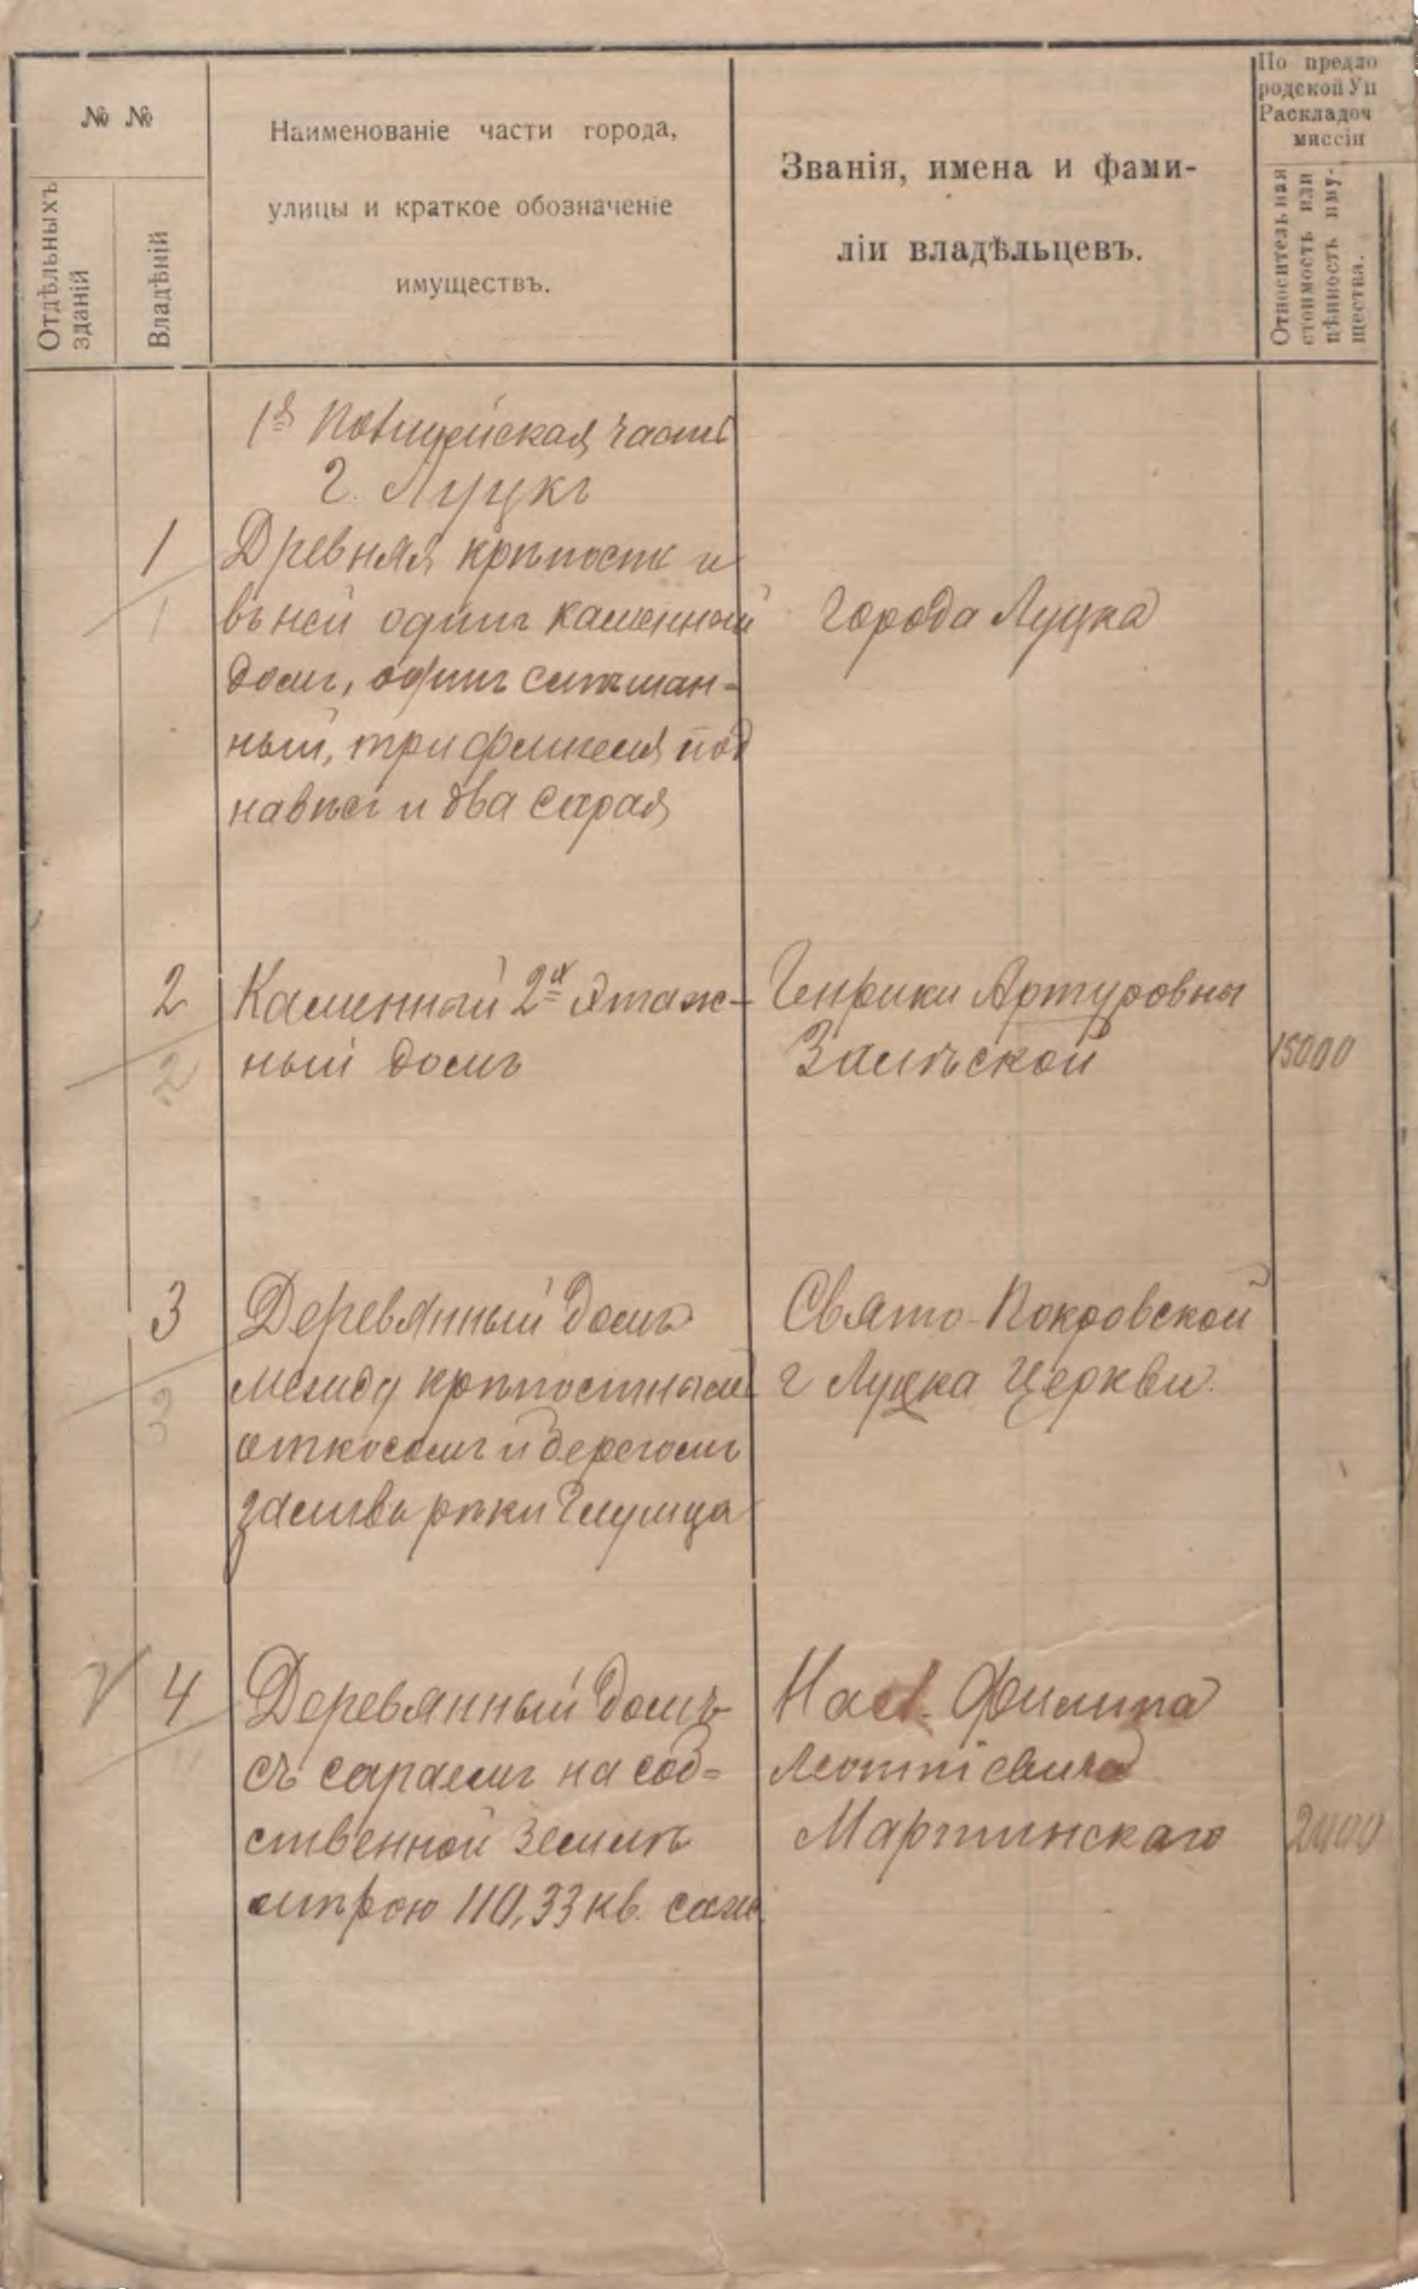 № №
Отдѣльныхъ
зданій
Владѣній
Наименованіе части города,
улицы и краткое обозначеніе
имуществъ.
Званія, имена и фами-
ліи владѣльцевъ.
По предло
родской Уп
Раскладоч
миссіи
Относительная
стоимость или
цѣнность иму-
щества.
1я Полицейская часть
г. Луцкъ
1
1
Древняя крѣпость и
въ ней одинъ каменный
домъ, одинъ смѣшан-
ный, три флигеля, под
навѣсъ и два сарая
Города Луцка
2
2
Каменный 2х этаж-
ный домъ
Генрики Артуровны
Залѣской
15000
3
3
Деревянный домъ
между крѣпостнымъ
откосомъ и берегомъ
залива рѣки Глушца
Свято-Покровской
г Луцка Церкви
4
Деревянный домъ
съ сараемъ на соб=
ственной землѣ
мѣрою 110,33 кв. саж.
Насл. Филиппа
Леонтіевича
Мартинскаго
2400